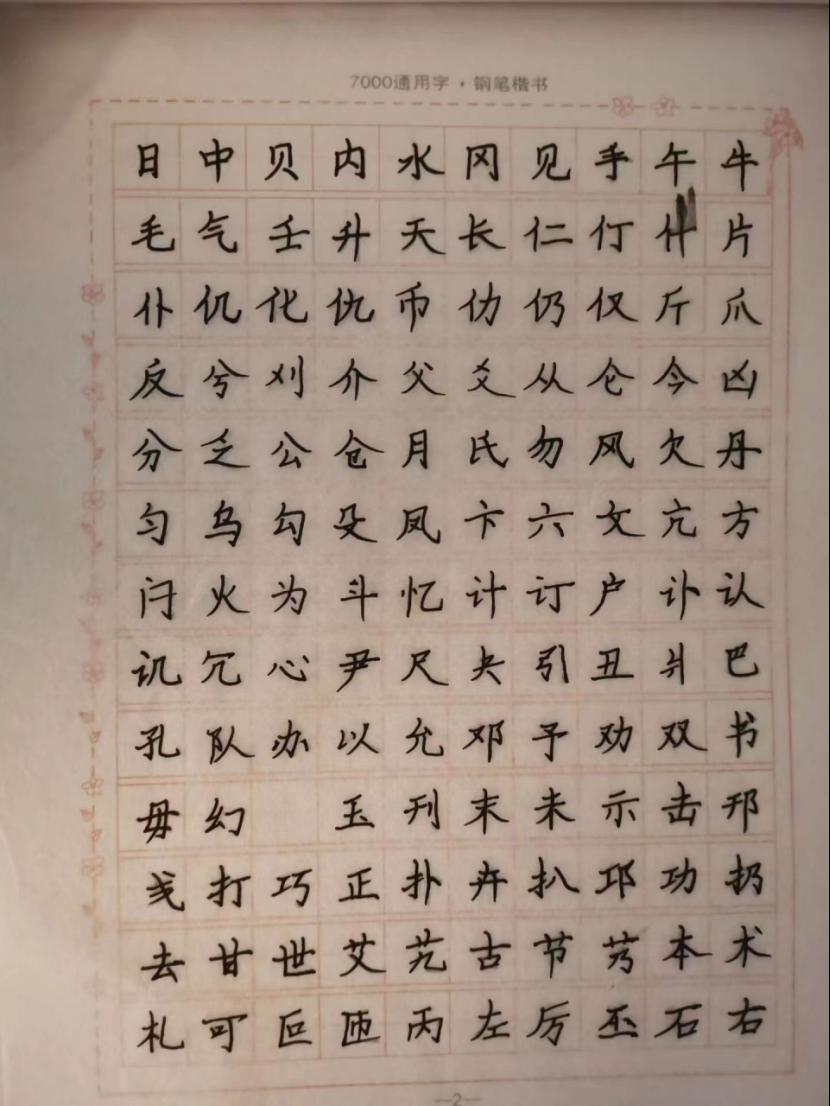 7000通用字·钢笔楷书
日中贝内水冈见手午牛
毛气壬升夭长仁仃什片
仆仉化仇币仂仍仅斤爪
反兮刈介父爻从仑今凶
分乏公仓月氏勿风欠丹
匀乌勾殳凤卞六文亢方
闩火为斗忆计订户讣认
讥冗心尹尺夬引丑爿巴
孔队办以允邓予劝双书
毋幻 玉刊末未示击邗
戋打巧正扑卉扒邛功扔
去甘世艾艽古节艿本术
札可叵匝丙左厉丕石右
—2—